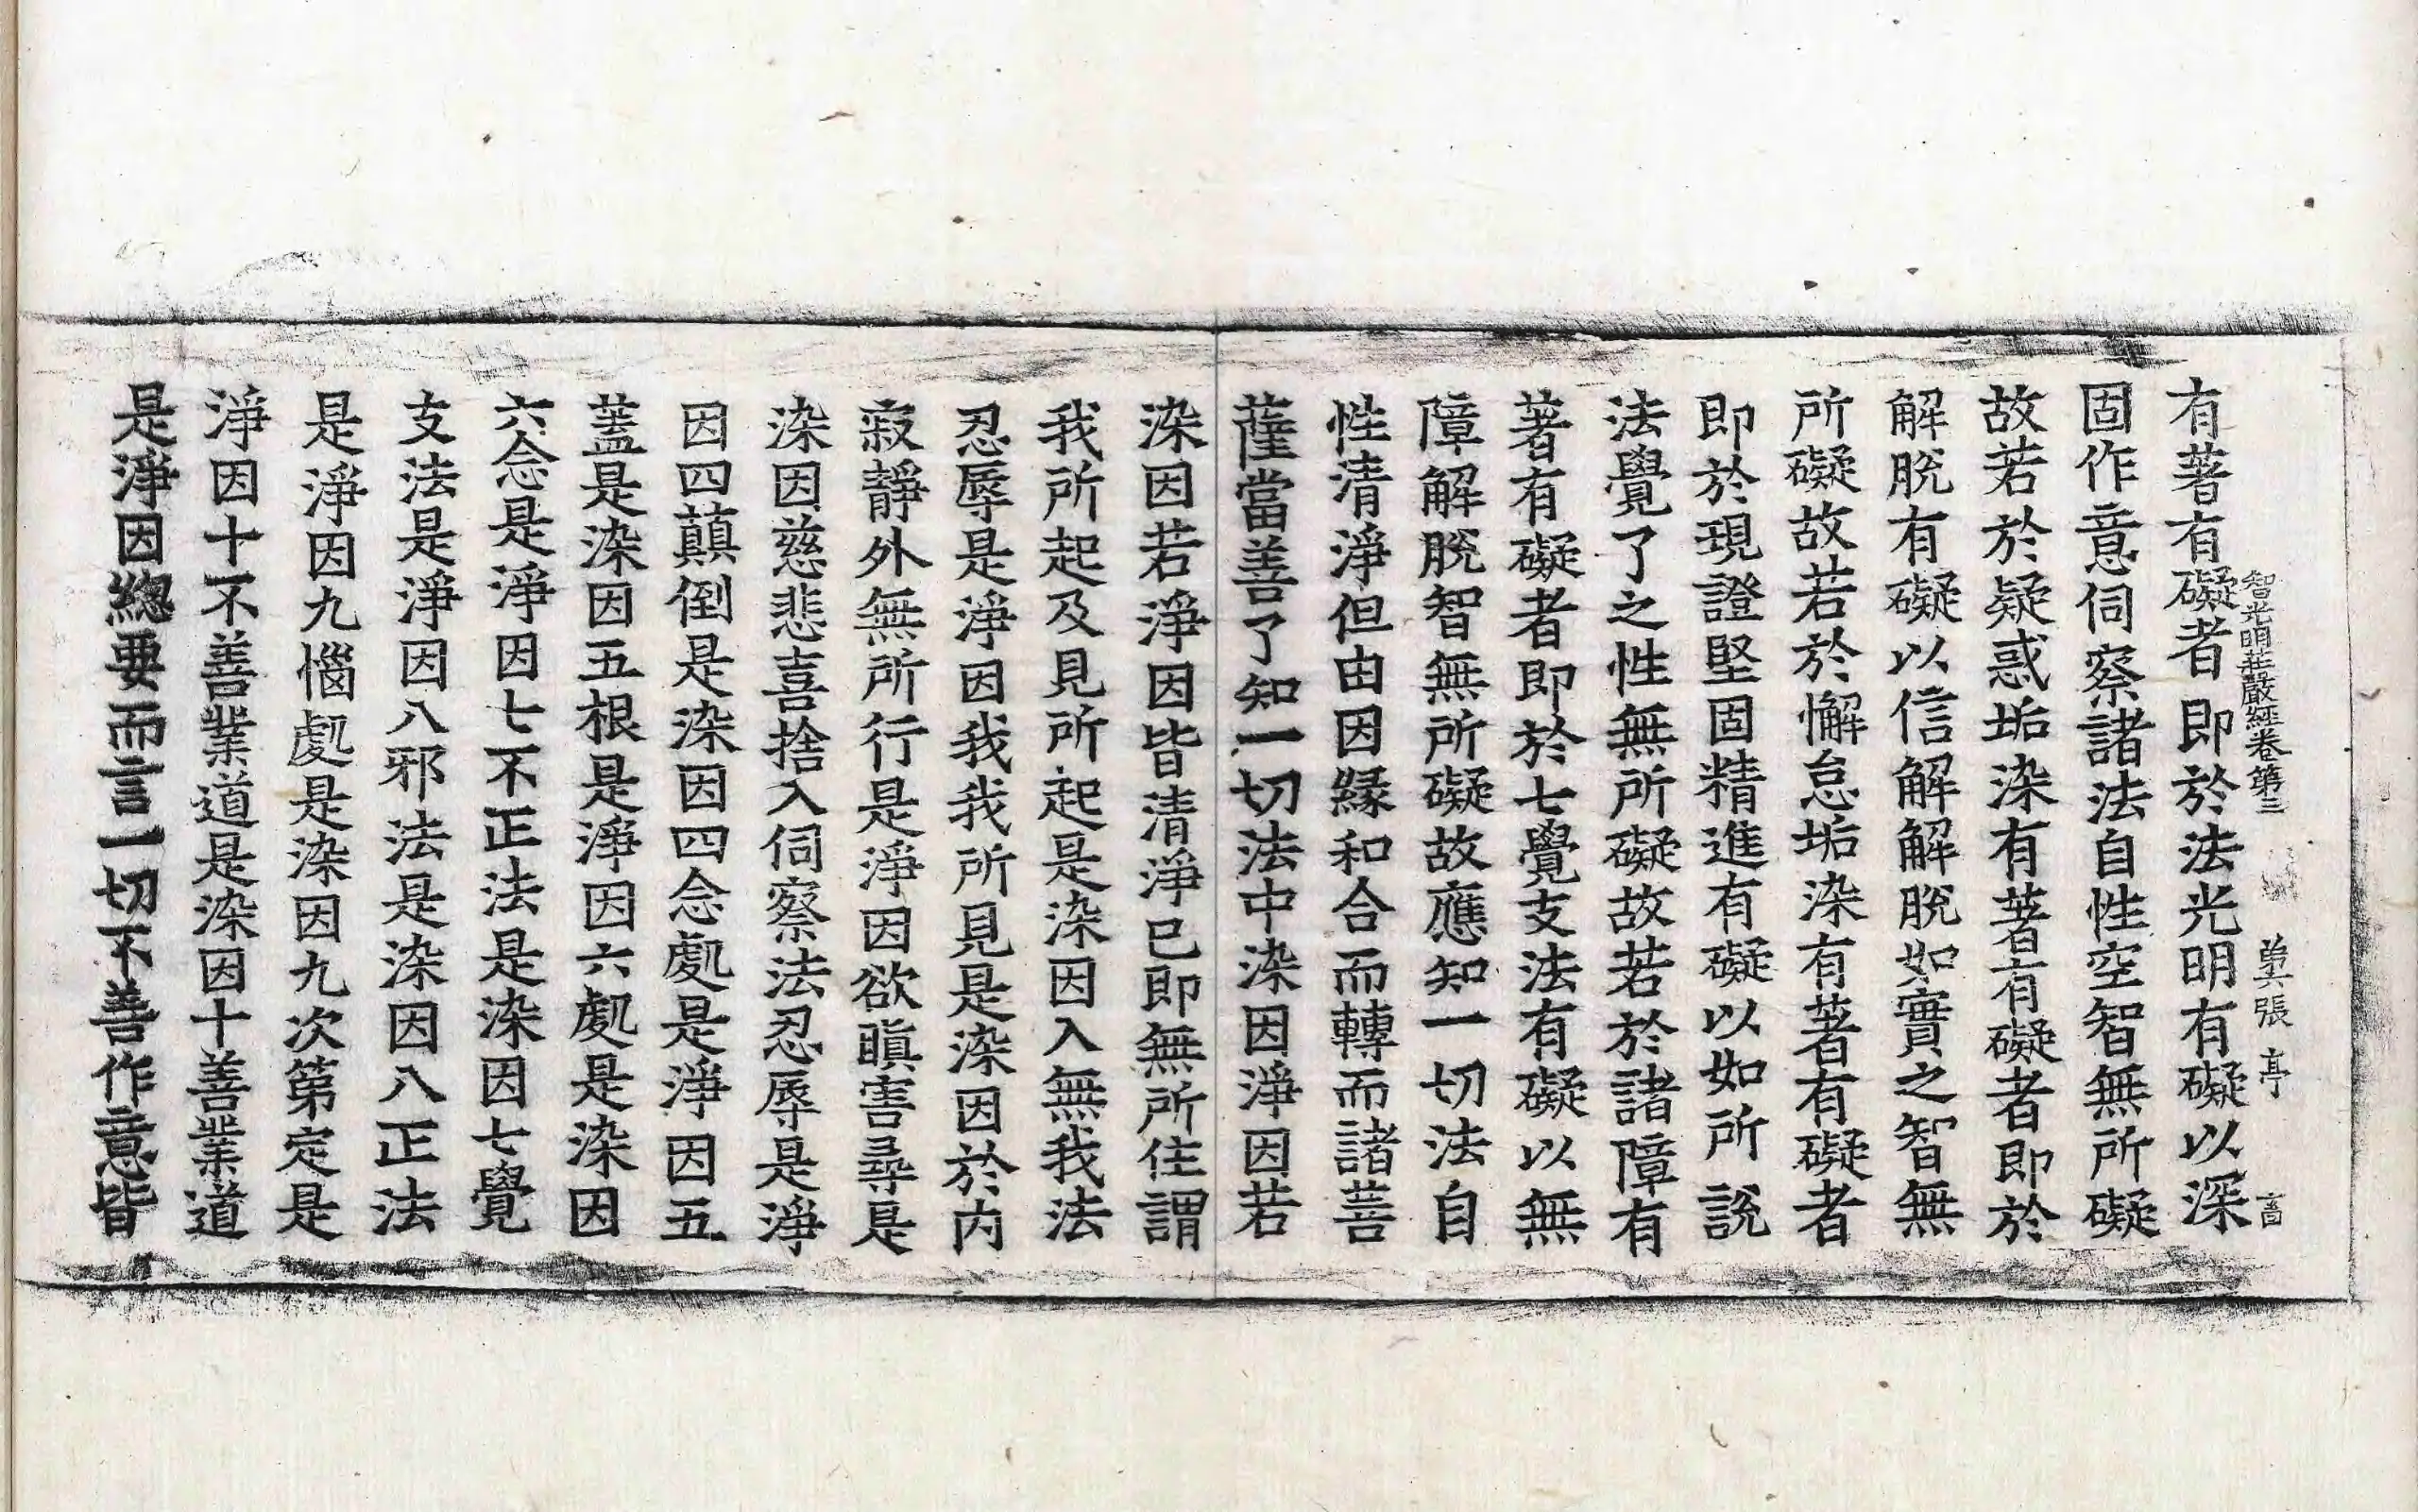 智光明莊嚴經卷第三 第六張 亭 言
有著有礙者即於法光明有礙以深
固作意伺察諸法自性空智無所礙
故若於疑惑垢染有著有礙者即於
解脫有礙以信解解脫如實之智無
所礙故若於懈怠垢染有著有礙者
即於現證堅固精進有礙以如所說
法覺了之性無所礙故若於諸障有
著有礙者即於七覺支法有礙以無
障解脫智無所礙故應知一切法自
性清淨但由因緣和合而轉而諸菩
薩當善了知一切法中染因淨因若
染因若淨因皆清淨已即無所住謂
我所起及見所起是染因入無我法
忍辱是淨因我我所見是染因於內
寂靜外無所行是淨因欲瞋害尋是
染因慈悲喜捨入伺察法忍辱是淨
因四顛倒是染因四念處是淨因五
蓋是染因五根是淨因六處是染因
六念是淨因七不正法是染因七覺
支法是淨因八邪法是染因八正法
是淨因九惱處是染因九次第定是
淨因十不善業道是染因十善業道
是淨因總要而言一切不善作意皆